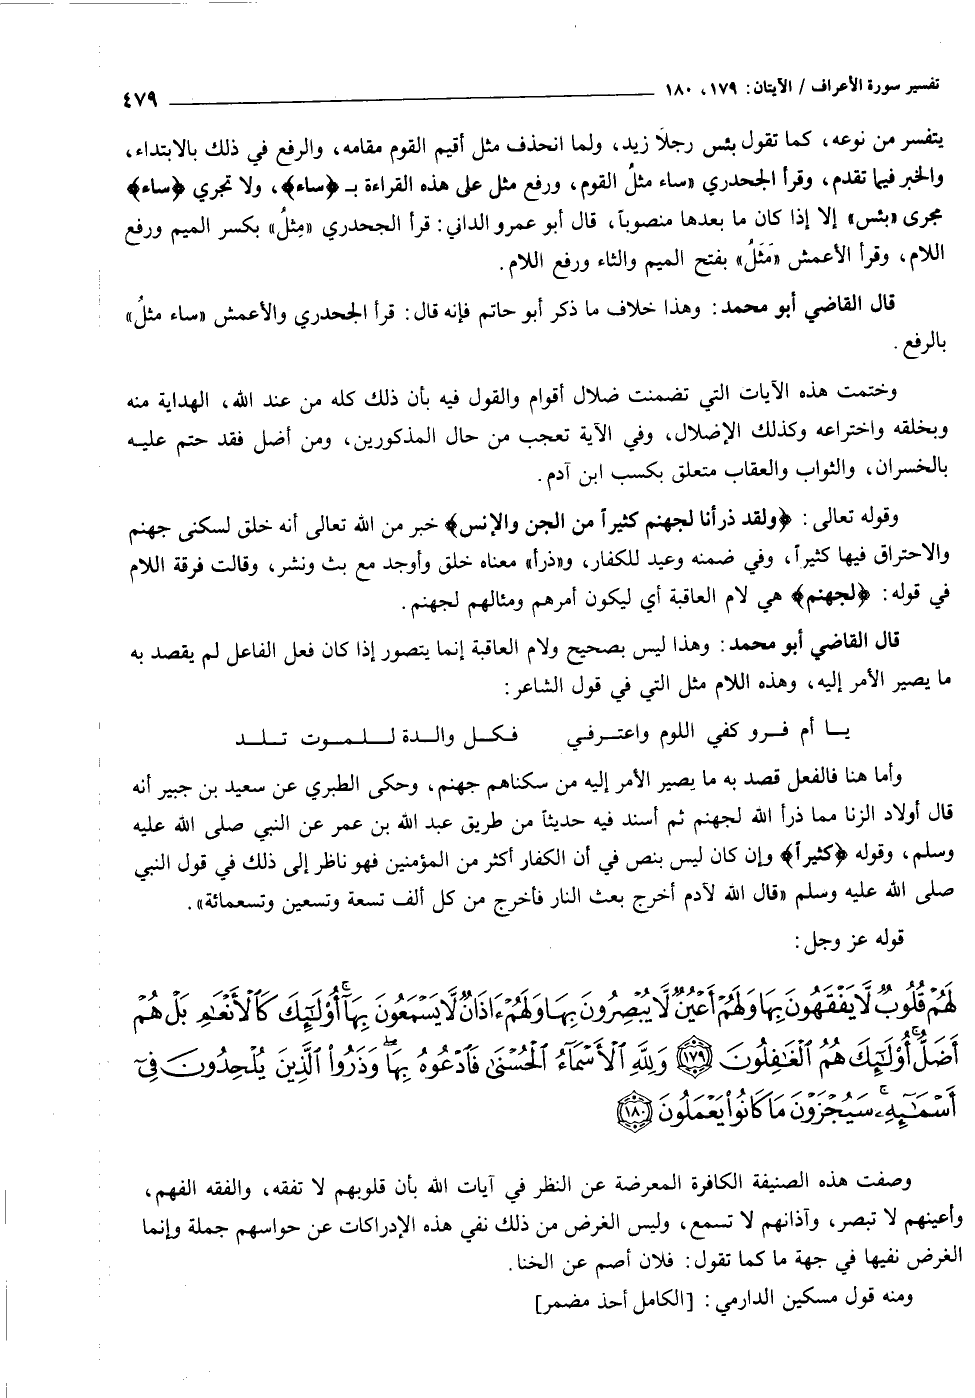 تفسير سورة الأعراف / الآيتان: ١٧٩، ١٨٠ ٤٧٩
يتفسر من نوعه، كما تقول بئس رجلاً زيد، ولما انحذف مثل أقيم القوم مقامه، والرفع في ذلك بالابتداء،
والخبر فيما تقدم، وقرأ الجحدري «ساء مثلُ القوم، ورفع مثل على هذه القراءة بـ ﴿ساء﴾، ولا تجري ﴿ساء﴾
مجرى «بئس» إلا إذا كان ما بعدها منصوباً، قال أبو عمرو الداني: قرأ الجحدري «مِثلُ» بكسر الميم ورفع
اللام، وقرأ الأعمش «مَثَلُ» بفتح الميم والثاء ورفع اللام.
قال القاضي أبو محمد: وهذا خلاف ما ذكر أبو حاتم فإنه قال: قرأ الجحدري والأعمش «ساء مثلُ»
بالرفع.
وختمت هذه الآيات التي تضمنت ضلال أقوام والقول فيه بأن ذلك كله من عند الله، الهداية منه
وبخلقه واختراعه وكذلك الإضلال، وفي الآية تعجب من حال المذكورين، ومن أضل فقد حتم عليه
بالخسران، والثواب والعقاب متعلق بكسب ابن آدم.
وقوله تعالى: ﴿ولقد ذرأنا لجهنم كثيراً من الجن والإنس﴾ خبر من الله تعالى أنه خلق لسكنى جهنم
والاحتراق فيها كثيراً، وفي ضمنه وعيد للكفار، و«ذرأ» معناه خلق وأوجد مع بث ونشر، وقالت فرقة اللام
في قوله: ﴿لجهنم﴾ هي لام العاقبة أي ليكون أمرهم ومثالهم لجهنم.
قال القاضي أبو محمد: وهذا ليس بصحيح ولام العاقبة إنما يتصور إذا كان فعل الفاعل لم يقصد به
ما يصير الأمر إليه، وهذه اللام مثل التي في قول الشاعر:
يا أم فرو كفي اللوم واعترفي فكل والدة للموت تلد
وأما هنا فالفعل قصد به ما يصير الأمر إليه من سكناهم جهنم، وحكى الطبري عن سعيد بن جبير أنه
قال أولاد الزنا مما ذرأ الله لجهنم ثم أسند فيه حديثاً من طريق عبد الله بن عمر عن النبي صلى الله عليه
وسلم، وقوله ﴿كثيراً﴾ وإن كان ليس بنص في أن الكفار أكثر من المؤمنين فهو ناظر إلى ذلك في قول النبي
صلى الله عليه وسلم «قال الله لآدم أخرج بعث النار فأخرج من كل ألف تسعة وتسعين وتسعمائة».
قوله عز وجل:
لَهُمْ قُلُوبٌ لَّا يَفْقَهُونَ بِهَا وَلَهُمْ أَعْيُنٌ لَّا يُبْصِرُونَ بِهَا وَلَهُمْ ءَاذَانٌ لَّا يَسْمَعُونَ بِهَآ أُوْلَٰٓئِكَ كَٱلْأَنْعَٰمِ بَلْ هُمْ
أَضَلُّ أُوْلَٰٓئِكَ هُمُ ٱلْغَٰفِلُونَ ١٧٩ وَلِلَّهِ ٱلْأَسْمَآءُ ٱلْحُسْنَىٰ فَٱدْعُوهُ بِهَا وَذَرُوا۟ ٱلَّذِينَ يُلْحِدُونَ فِىٓ
أَسْمَٰٓئِهِۦ سَيُجْزَوْنَ مَا كَانُوا۟ يَعْمَلُونَ ١٨٠
وصفت هذه الصنيفة الكافرة المعرضة عن النظر في آيات الله بأن قلوبهم لا تفقه، والفقه الفهم،
وأعينهم لا تبصر، وآذانهم لا تسمع، وليس الغرض من ذلك نفي هذه الإدراكات عن حواسهم جملة وإنما
الغرض نفيها في جهة ما كما تقول: فلان أصم عن الخنا.
ومنه قول مسكين الدارمي: [الكامل أحذ مضمر]